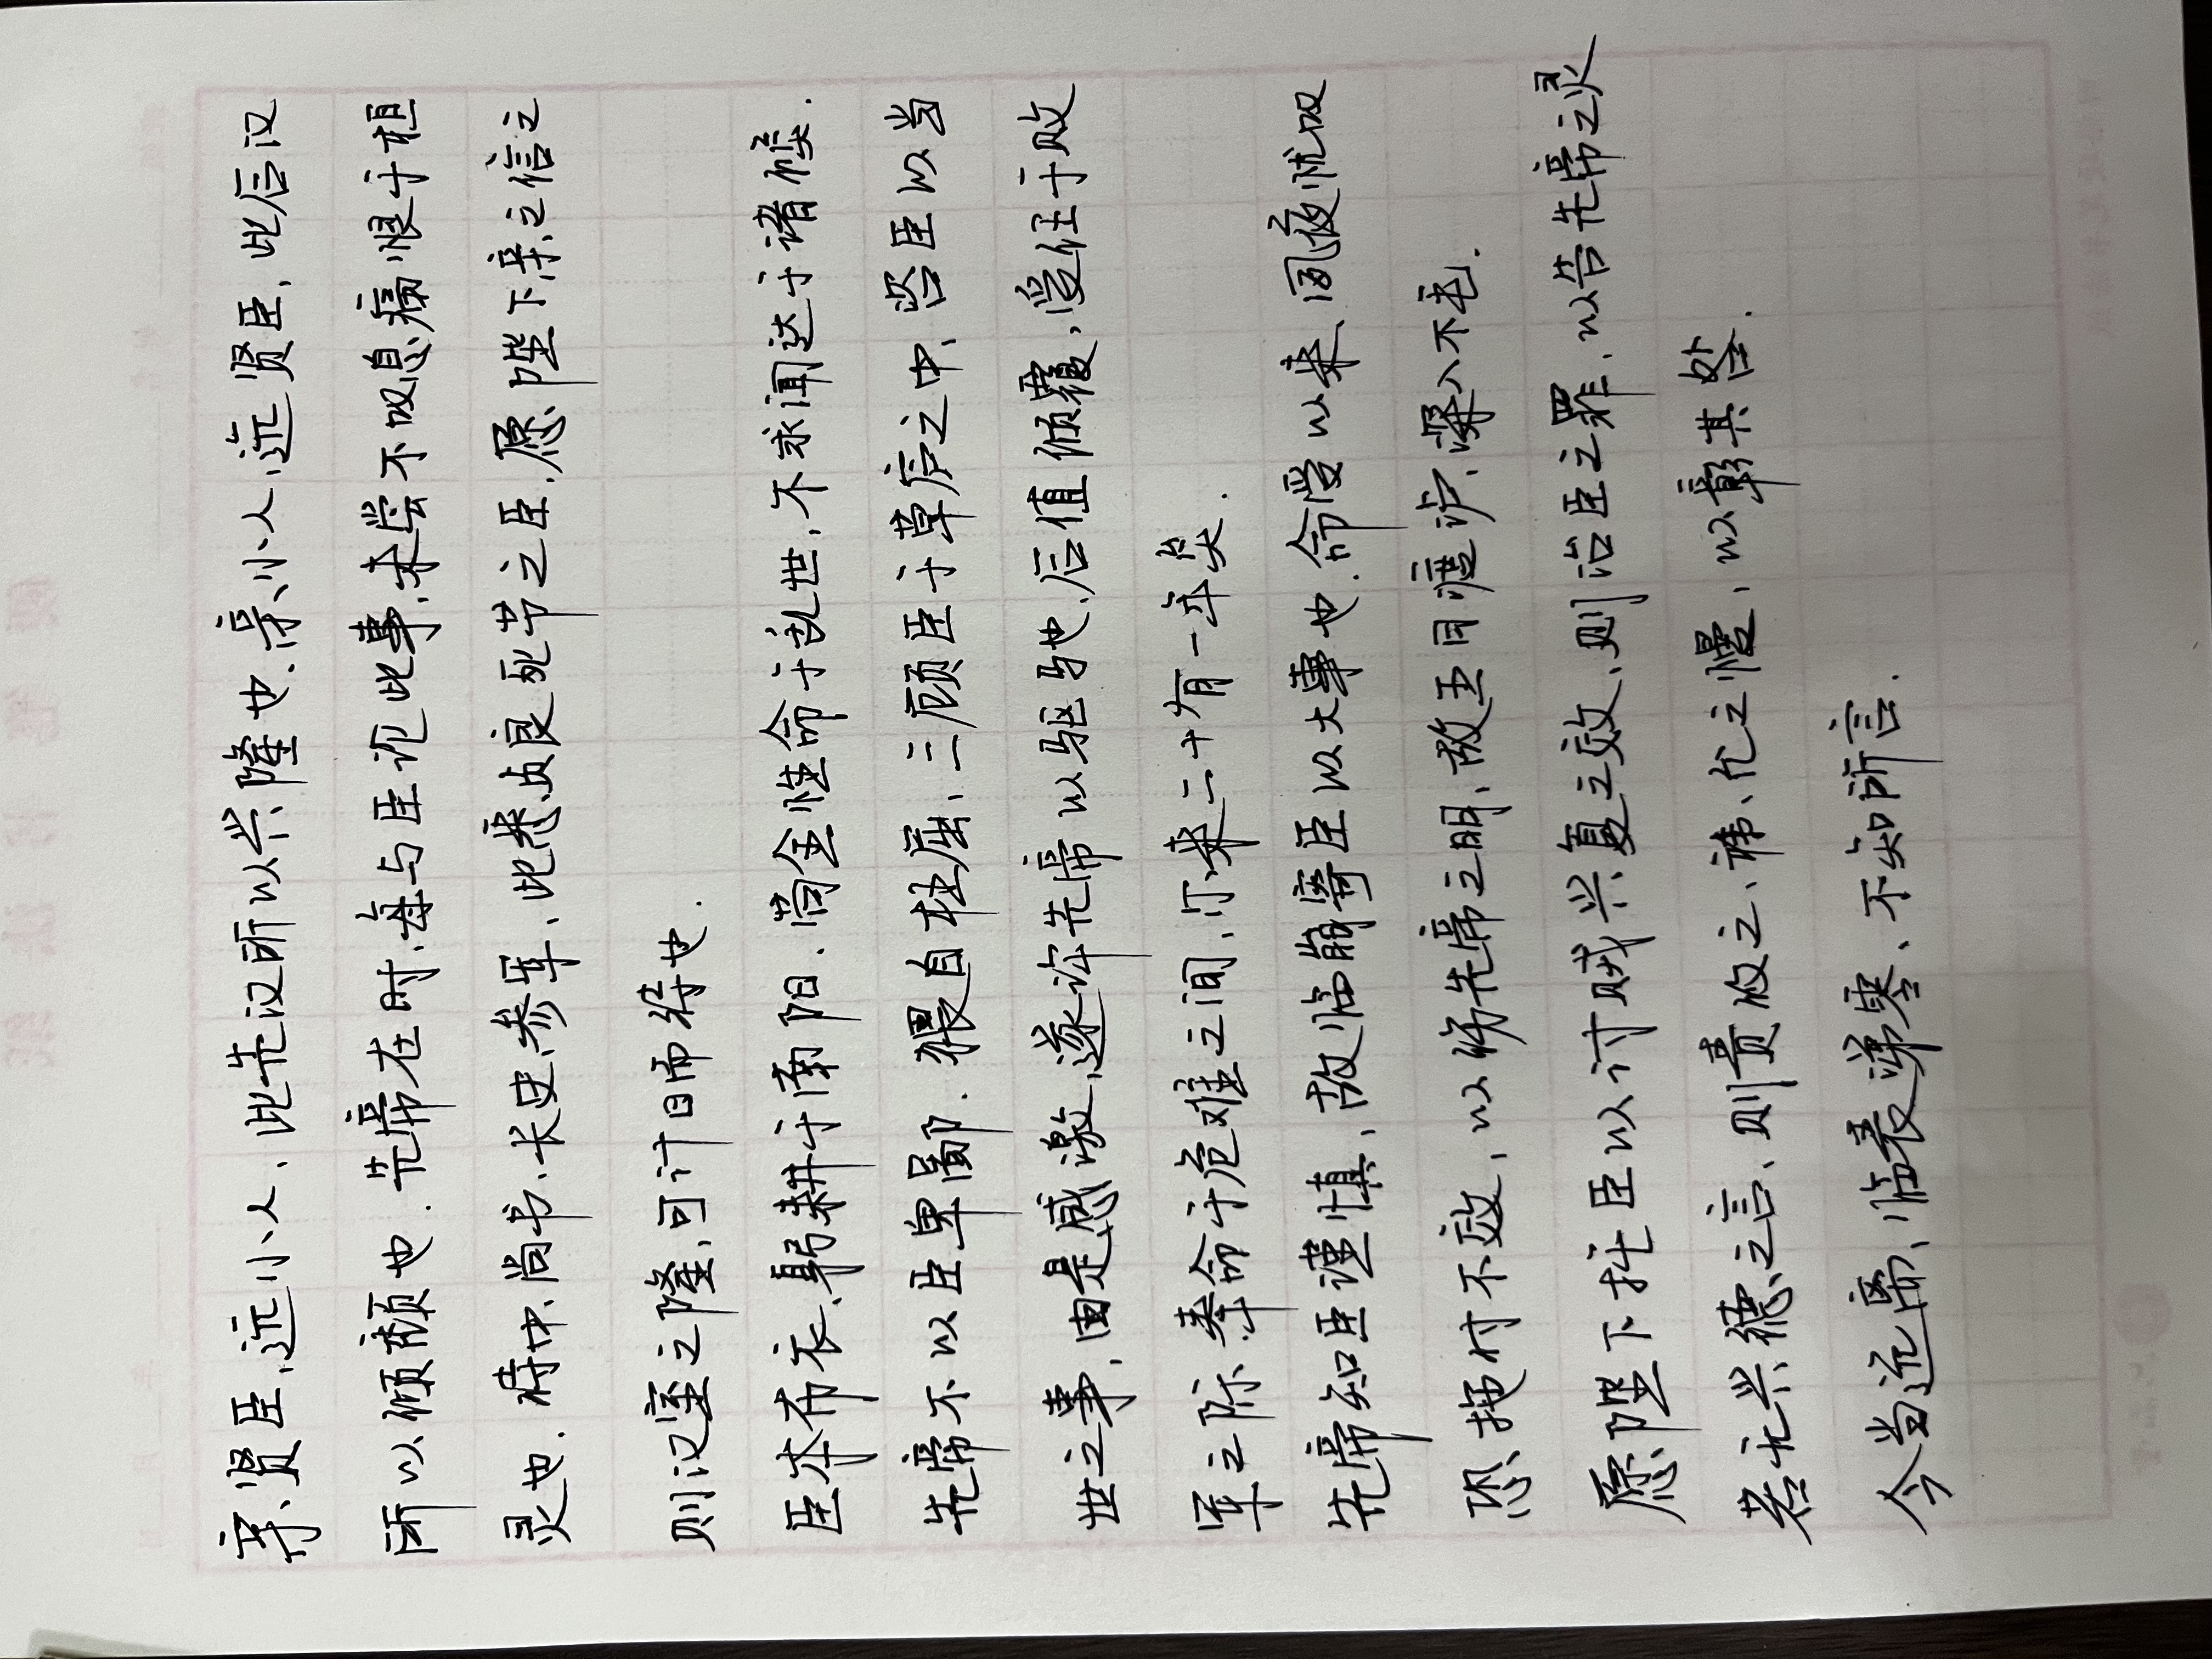 亲贤臣、远小人、此先汉所以兴隆也.亲小人、远贤臣、此后汉
所以倾颓也.先帝在时、每与臣论此事、未尝不叹息痛恨于桓
灵也.侍中、尚书、长史、参军、此悉贞良死节之臣、愿陛下亲之信之
则汉室之隆、可计日而待也.
臣本布衣、躬耕于南阳.苟全性命于乱世、不求闻达于诸侯.
先帝不以臣卑鄙.猥自枉屈、三顾臣于草庐之中、咨臣以当
世之事、由是感激、遂许先帝以驱驰、后值倾覆、受任于败
军之际、奉命于危难之间、尔来二十有一年矣.
先帝知臣谨慎、故临崩寄臣以大事也.命受以来、夙夜忧叹
恐托付不效、以伤先帝之明、故五月渡泸、深入不毛.
愿陛下托臣以讨贼兴复之效、则治臣之罪、以告先帝之灵
若无兴德之言、则责攸之、祎、允之慢、以彰其咎.
今当远离、临表涕零、不知所言.